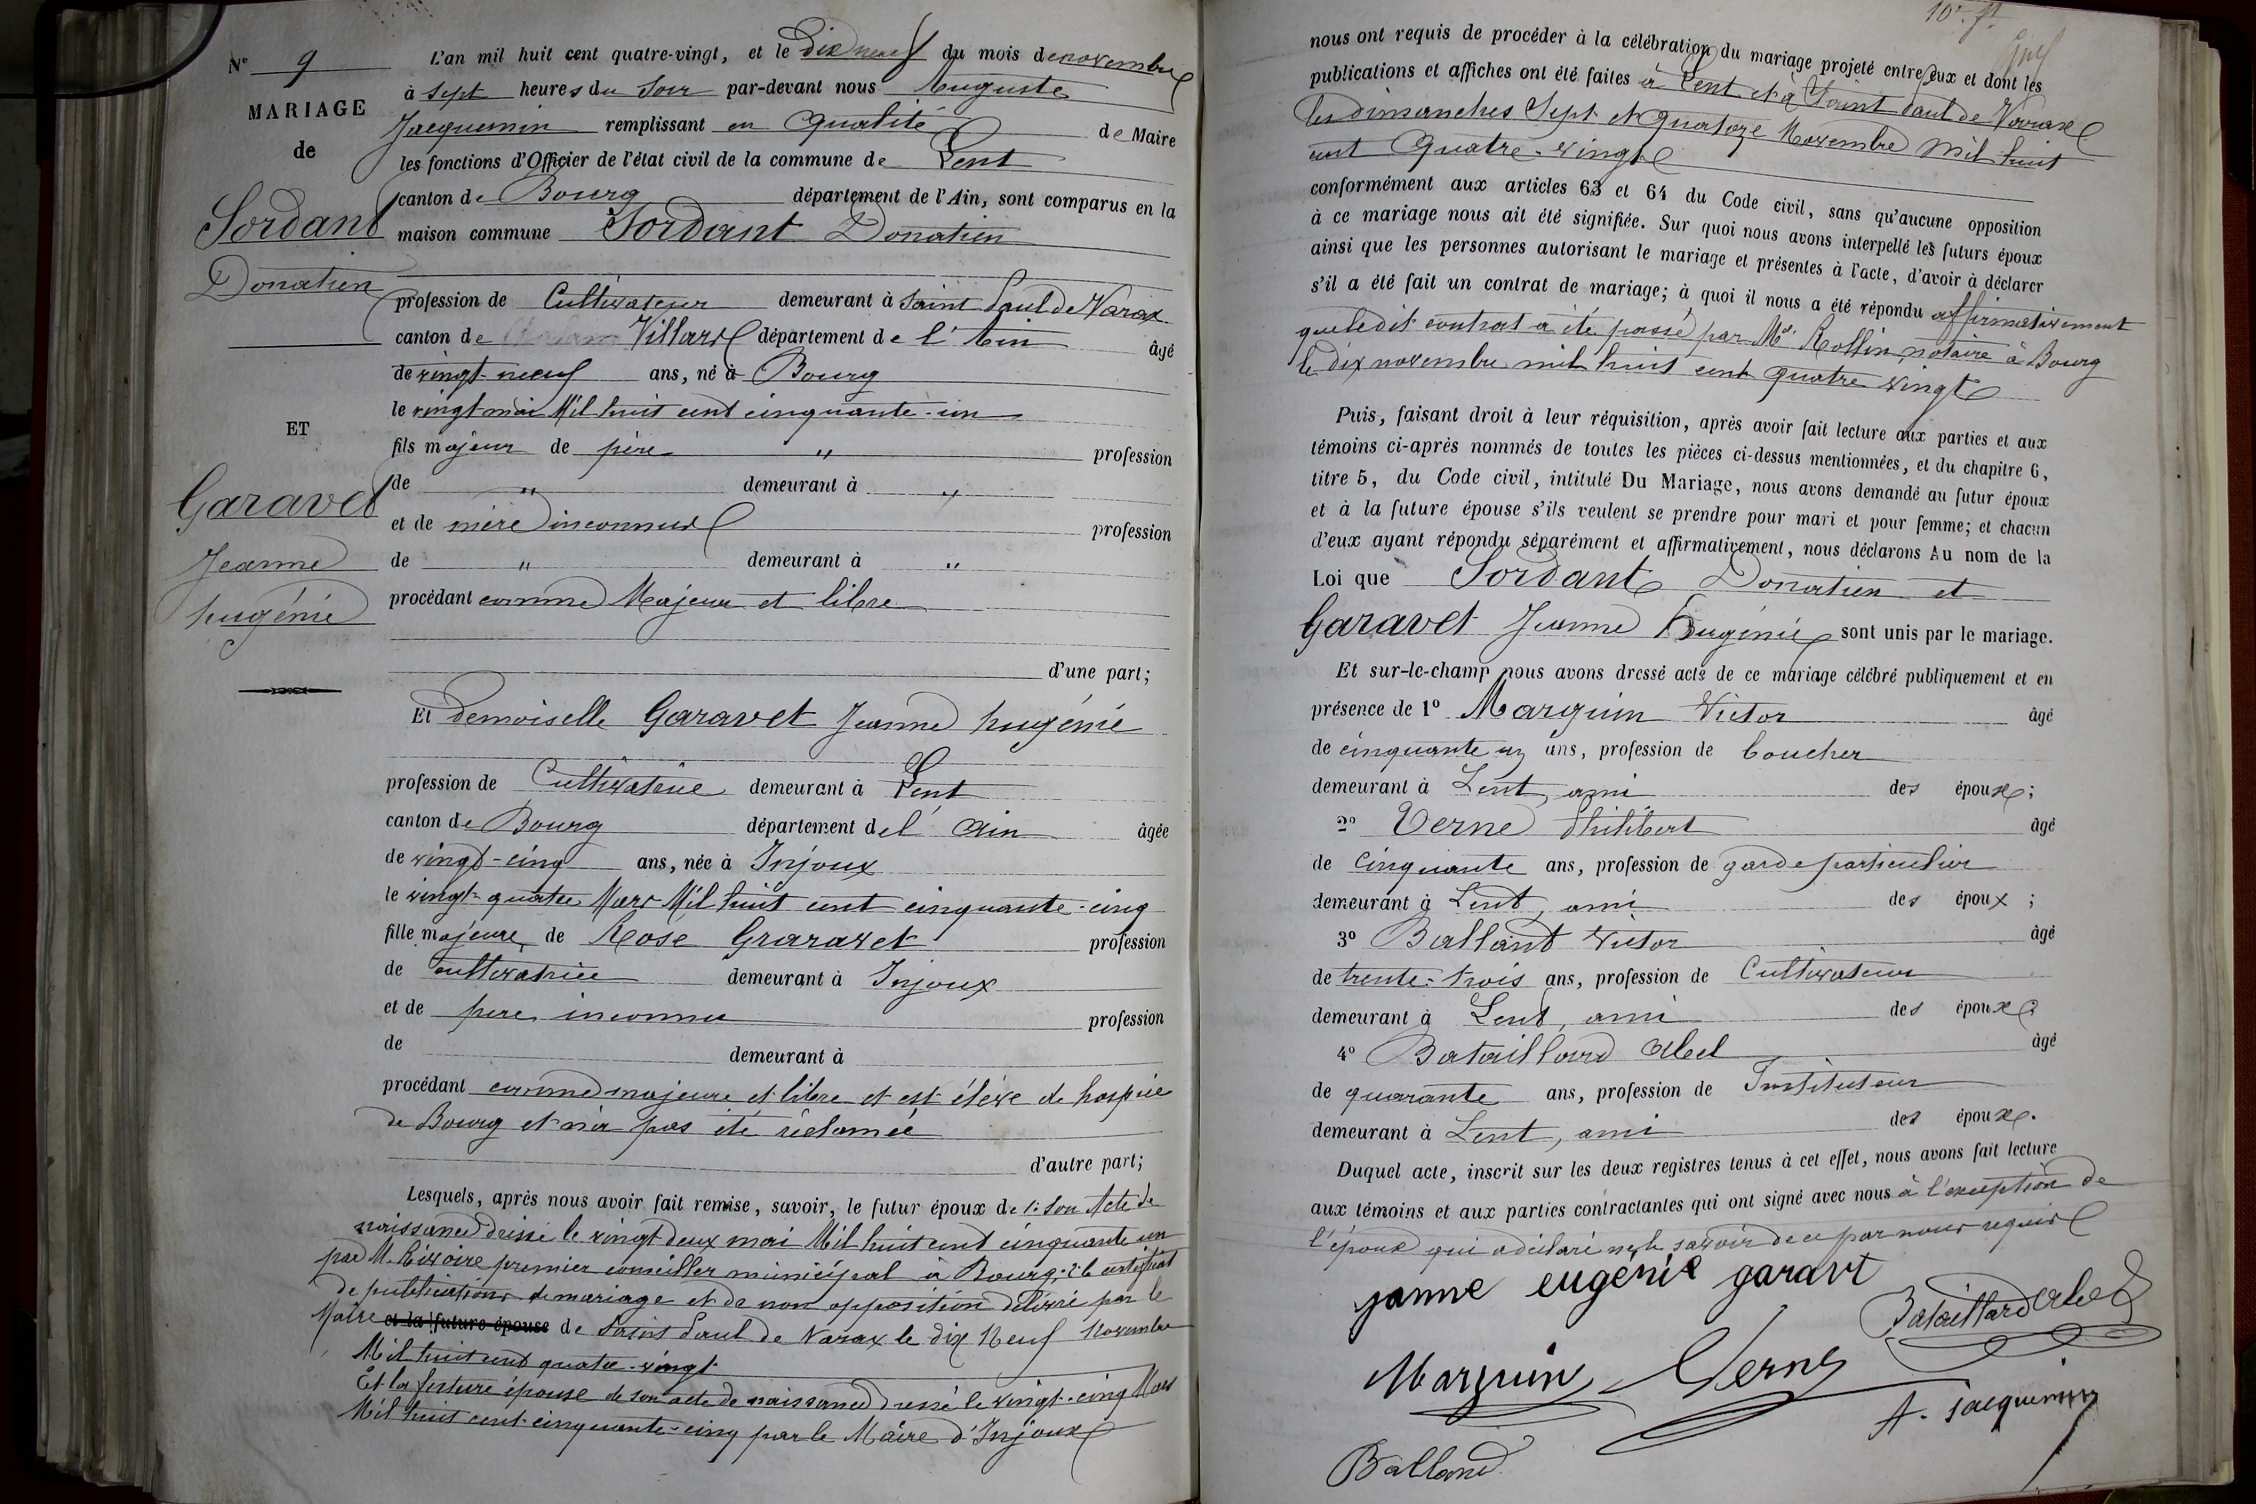 N° 9
MARIAGE
de
Sordant
Donatien
ET
Garavet
Jeanne
Eugénie
L'an mil huit cent quatre-vingt, et le Dix neuf du mois de novembre
à sept heures du Soir par-devant nous Auguste
Jacquemin remplissant en Qualité de Maire
les fonctions d'Officier de l'état civil de la commune de Lent
canton de Bourg département de l'Ain, sont comparus en la
maison commune Sordant Donatien
profession de Cultivateur demeurant à Saint Paul de Varax
canton de Villars département de l'Ain âgé
de vingt-neuf ans, né à Bourg
le vingt mai Mil huit cent cinquante-un
fils majeur de père " profession
de " demeurant à "
et de mère inconnus profession
de " demeurant à "
procédant comme Majeur et libre
d'une part;
Et demoiselle Garavet Jeanne Eugénie
profession de Cultivatrice demeurant à Lent
canton de Bourg département de l'Ain âgée
de vingt-cinq ans, née à Injoux
le vingt-quatre Mars Mil huit cent cinquante-cinq
fille majeure de Rose Graravet profession
de cultivatrice demeurant à Injoux
et de père inconnu profession
de demeurant à
procédant comme majeure et libre et est élève de hospice
de Bourg et n'a pas été réclamée
d'autre part;
Lesquels, après nous avoir fait remise, savoir, le futur époux de 1° Son Acte de
naissance dressé le vingt deux mai Mil huit cent cinquante un
par M. Rivoire premier conseiller municipal à Bourg; 2° le certificat
de publications de mariage et de non opposition délivré par le
Maire et la future épouse de Saint Paul de Varax le dix Neuf Novembre
Mil huit cent quatre-vingt
Et la future épouse de son acte de naissance dressé le vingt-cinq Mars
Mil huit cent cinquante-cinq par le Maire d'Injoux
nous ont requis de procéder à la célébration du mariage projeté entre eux et dont les
publications et affiches ont été faites à Lent et à Saint Paul de Varax
les dimanches Sept et Quatorze Novembre Mil huit
cent Quatre-vingt
conformément aux articles 63 et 64 du Code civil, sans qu'aucune opposition
à ce mariage nous ait été signifiée. Sur quoi nous avons interpellé les futurs époux
ainsi que les personnes autorisant le mariage et présentes à l'acte, d'avoir à déclarer
s'il a été fait un contrat de mariage; à quoi il nous a été répondu affirmativement
que ledit contrat a été passé par Me Rollin, notaire à Bourg
le dix novembre mil huit cent quatre vingt
Puis, faisant droit à leur réquisition, après avoir fait lecture aux parties et aux
témoins ci-après nommés de toutes les pièces ci-dessus mentionnées, et du chapitre 6,
titre 5, du Code civil, intitulé Du Mariage, nous avons demandé au futur époux
et à la future épouse s'ils veulent se prendre pour mari et pour femme; et chacun
d'eux ayant répondu séparément et affirmativement, nous déclarons Au nom de la
Loi que Sordant Donatien et
Garavet Jeanne Eugénie sont unis par le mariage.
Et sur-le-champ nous avons dressé acte de ce mariage célébré publiquement et en
présence de 1° Marguin Victor âgé
de cinquante un ans, profession de boucher
demeurant à Lent, ami des époux;
2° Verne Philibert âgé
de cinquante ans, profession de garde particulier
demeurant à Lent, ami des époux;
3° Balland Victor âgé
de trente-trois ans, profession de Cultivateur
demeurant à Lent, ami des époux
4° Bataillard Abel âgé
de quarante ans, profession de Instituteur
demeurant à Lent, ami des époux.
Duquel acte, inscrit sur les deux registres tenus à cet effet, nous avons fait lecture
aux témoins et aux parties contractantes qui ont signé avec nous à l'exception de
l'époux qui a déclaré ne le savoir de ce par nous requis
janne eugénie garavt
Bataillard Abel
Marguin Verne
A. Jacquemin
Balland